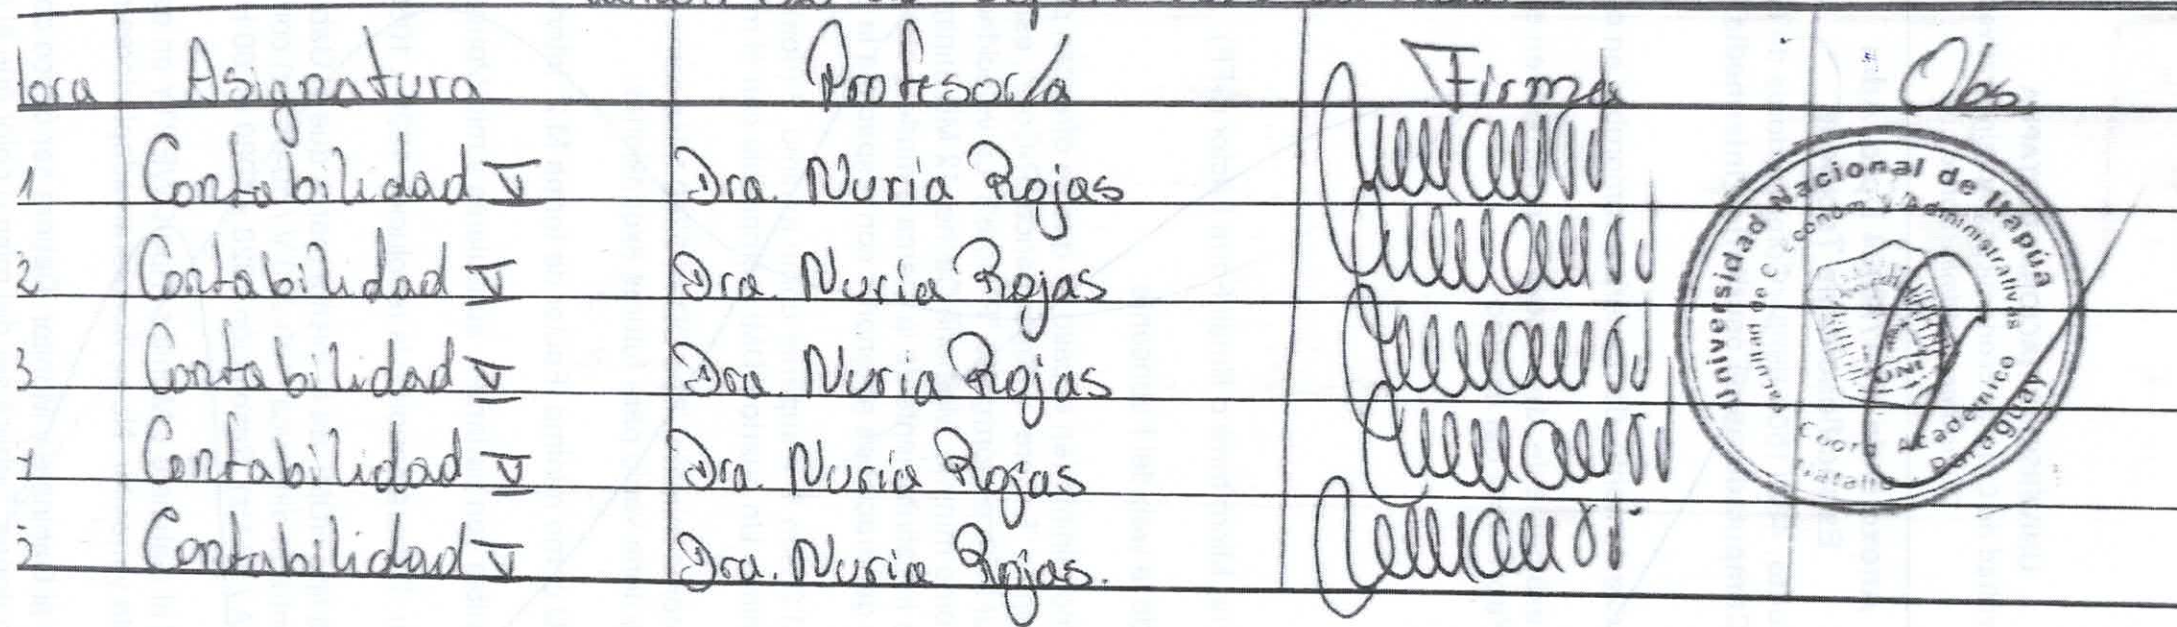 Hora Asignatura Profesor/a Firma Obs.
1 Contabilidad V Dra. Nuria Rojas
2 Contabilidad V Dra. Nuria Rojas
3 Contabilidad V Dra. Nuria Rojas
Contabilidad V Dra. Nuria Rojas
Contabilidad V Dra. Nuria Rojas.
Universidad Nacional de Itapúa
Facultad de C. Econom y Administrativas
UNI
Coord Académico
Natalio Paraguay